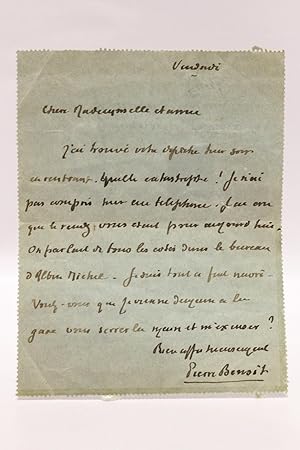 Vendredi
Chère Mademoiselle et amie
J'ai trouvé votre dépêche hier soir
en rentrant. Quelle catastrophe ! Je n'ai
pas compris hier au téléphone. J'ai cru
que le rendez-vous était pour aujourd'hui.
On parlait de tous les côtés dans le bureau
d'Albin Michel. Je suis tout à fait navré.
Voulez-vous que je vienne demain à la
gare vous serrer la main et m'excuser ?
Bien affectueusement
Pierre Benoit